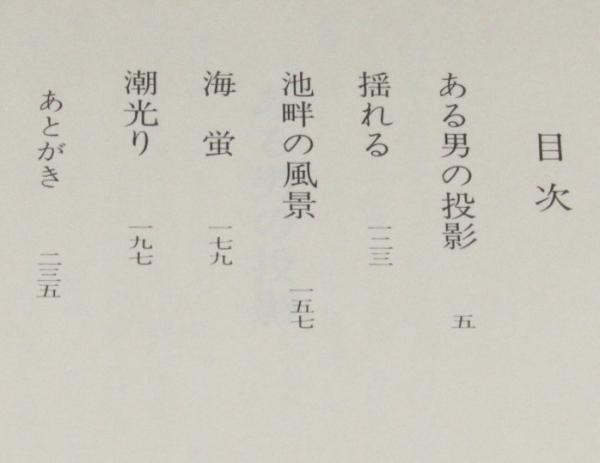 目次
ある男の投影 五
揺れる 一二三
池畔の風景 一五七
海蛍 一七九
潮光り 一九七
あとがき 二三五